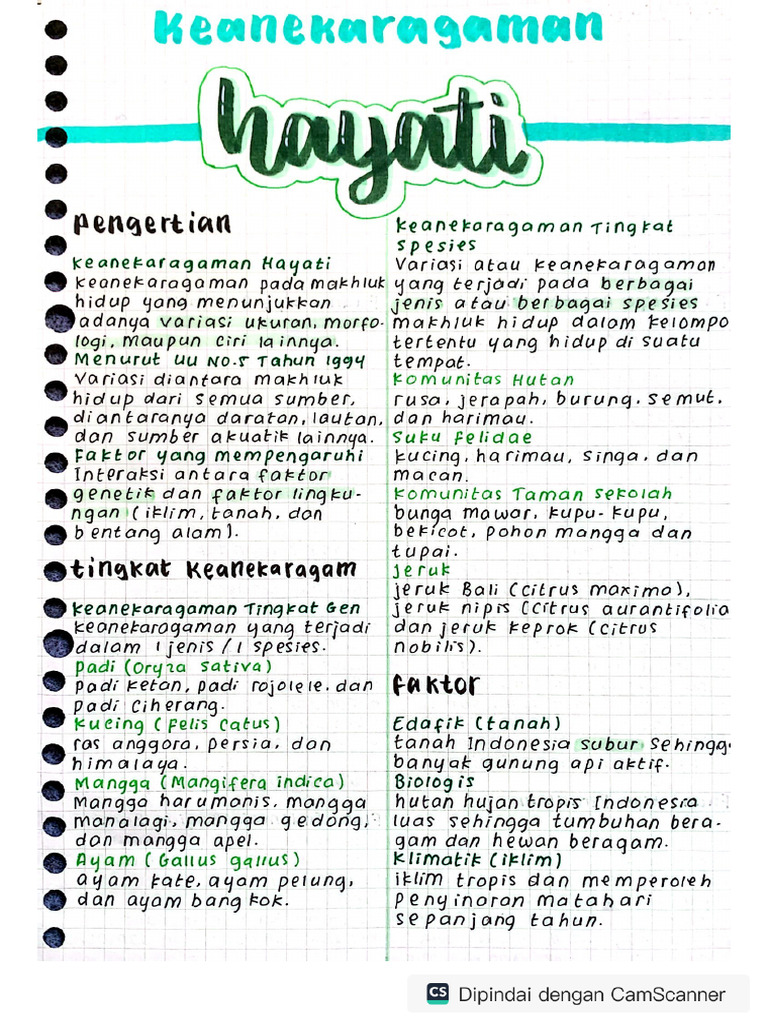 Keanekaragaman
hayati
Pengertian
Keanekaragaman Hayati
Keanekaragaman pada makhluk
hidup yang menunjukkan
adanya variasi ukuran, morfo-
logi, maupun ciri lainnya.
Menurut UU No.5 Tahun 1994
Variasi diantara makhluk
hidup dari semua sumber,
diantaranya daratan, lautan,
dan sumber akuatik lainnya.
Faktor yang mempengaruhi
Interaksi antara faktor
genetik dan faktor lingku-
ngan (iklim, tanah, dan
bentang alam).
tingkat Keanekaragam
Keanekaragaman Tingkat Gen
Keanekaragaman yang terjadi
dalam 1 jenis / 1 spesies.
Padi (Oryza Sativa)
padi ketan, padi rojolele, dan
padi Ciherang.
Kucing (Felis Catus)
ras anggora, persia, dan
himalaya.
Mangga (Mangifera indica)
Mangga harumanis, mangga
manalagi, mangga gedong,
dan mangga apel.
Ayam (Gallus gallus)
ayam kate, ayam pelung,
dan ayam bangkok.
Keanekaragaman Tingkat
Spesies
Variasi atau keanekaragaman
yang terjadi pada berbagai
jenis atau berbagai spesies
makhluk hidup dalam kelompo
tertentu yang hidup di suatu
tempat.
Komunitas Hutan
rusa, jerapah, burung, semut,
dan harimau.
Suku Felidae
kucing, harimau, singa, dan
macan.
Komunitas Taman Sekolah
bunga mawar, kupu-kupu,
bekicot, pohon mangga dan
tupai.
Jeruk
jeruk Bali (citrus maxima),
jeruk nipis (citrus aurantifolia
dan jeruk keprok (citrus
nobilis).
Faktor
Edafik (tanah)
tanah Indonesia subur sehingg
banyak gunung api aktif.
Biologis
hutan hujan tropis Indonesia
luas sehingga tumbuhan bera-
gam dan hewan beragam.
Klimatik (iklim)
iklim tropis dan memperoleh
penyinaran matahari
sepanjang tahun.
CS Dipindai dengan CamScanner